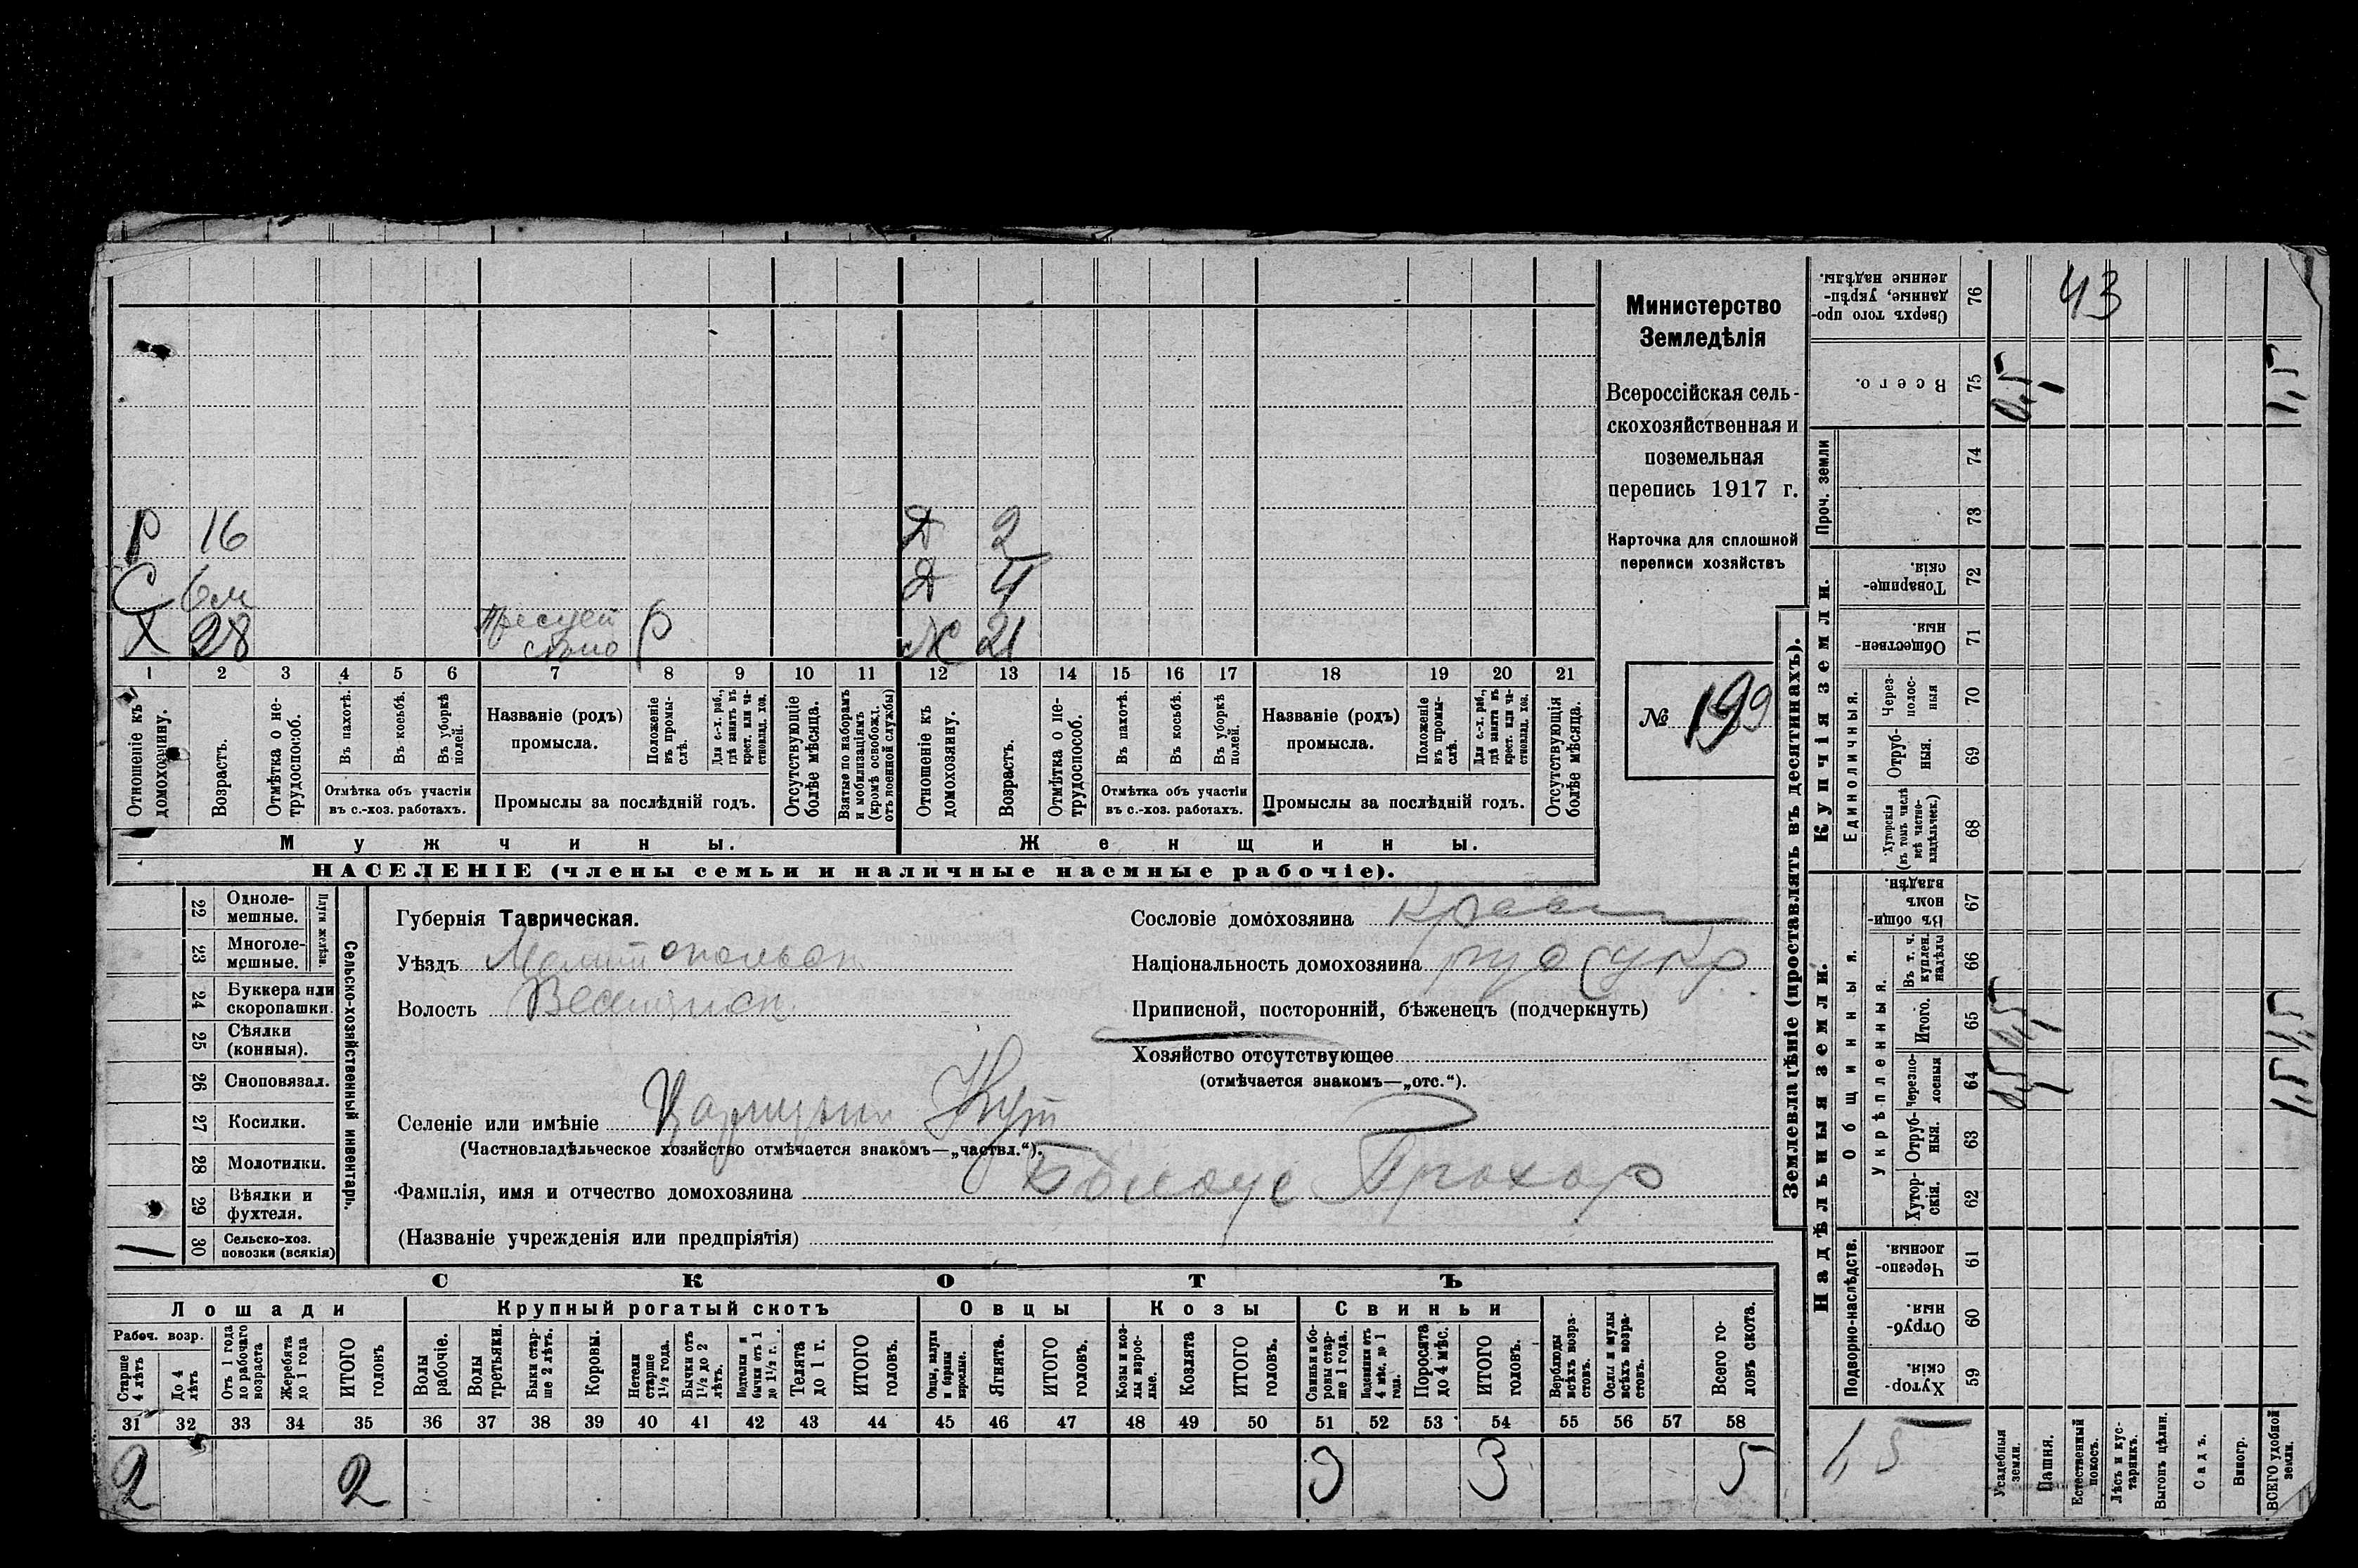 Министерство
Земледѣлія
Всероссійская сель-
скохозяйственная и
поземельная
перепись 1917 г.
Карточка для сплошной
переписи хозяйствъ
№ 199
Р 16
С 6м
Х 28
Р
Д 2
Д 4
Ж 21
1 2 3 4 5 6 7 8 9 10 11 12 13 14 15 16 17 18 19 20 21
Отношеніе къ домохозяину.
Возрастъ.
Отмѣтка о не-трудоспособ.
Въ пахотѣ.
Въ косьбѣ.
Въ уборкѣ полей.
Отмѣтка объ участіи
въ с.-хоз. работахъ.
Названіе (родъ)
промысла.
Положеніе въ промы-слѣ.
Для с.-х. раб., гдѣ занятъ въ крест. или ча-стновлад. хоз.
Промыслы за послѣдній годъ.
Отсутствующіе болѣе мѣсяца.
Взятые по наборамъ и мобилизаціямъ (кромѣ освобожд. отъ военной службы)
Отношеніе къ домохозяину.
Возрастъ.
Отмѣтка о не-трудоспособ.
Въ пахотѣ.
Въ косьбѣ.
Въ уборкѣ полей.
Отмѣтка объ участіи
въ с.-хоз. работахъ.
Названіе (родъ)
промысла.
Положеніе въ промы-слѣ.
Для с.-х. раб., гдѣ занята въ крест. или ча-стновлад. хоз.
Промыслы за послѣдній годъ.
Отсутствующія болѣе мѣсяца.
Мужчины.
Женщины.
НАСЕЛЕНІЕ (члены семьи и наличные наемные рабочіе).
Сельско-хозяйственный инвентарь.
Плуги желѣзн.
22 Одноле-мешные.
23 Многоле-мешные.
24 Буккера или скоропашки.
25 Сѣялки (конныя).
26 Сноповязал.
27 Косилки.
28 Молотилки.
29 Вѣялки и фухтеля.
1 30 Сельско-хоз. повозки (всякія)
Губернія Таврическая.
Уѣздъ Мелитопольск
Волость Веселянск.
Селеніе или имѣніе Царицын Кут
(Частновладѣльческое хозяйство отмѣчается знакомъ—„частвл.“).
Фамилія, имя и отчество домохозяина Білоус Прохор
(Названіе учрежденія или предпріятія)
Сословіе домохозяина Крест
Національность домохозяина рус укр.
Приписной, посторонній, бѣженецъ (подчеркнуть)
Хозяйство отсутствующее
(отмѣчается знакомъ—„отс.“).
СКОТЪ
Лошади
Рабоч. возр.
Старше 4 лѣтъ
До 4 лѣтъ
Отъ 1 года до рабочаго возраста
Жеребята до 1 года
ИТОГО головъ
Крупный рогатый скотъ
Волы рабочіе.
Волы третьяки.
Быки стар-ше 2 лѣтъ.
Коровы.
Нетели старше 1½ года.
Бычки отъ 1½ до 2 лѣтъ.
Подтелки и бычки отъ 1 до 1½ г.
Телята до 1 г.
ИТОГО головъ.
Овцы
Овцы, валухи и бараны взрослые.
Ягнята.
ИТОГО головъ.
Козы
Козы и коз-лы взрос-лые.
Козлята
ИТОГО головъ.
Свиньи
Свиньи и бо-ровы стар-ше 1 года.
Подсвинки отъ 4 мѣс. до 1 года.
Поросята до 4 мѣс.
ИТОГО головъ.
Верблюды всѣхъ возра-стовъ.
Ослы и мулы всѣхъ возра-стовъ.
Всего го-ловъ скота.
31 32 33 34 35 36 37 38 39 40 41 42 43 44 45 46 47 48 49 50 51 52 53 54 55 56 57 58
2 2 3 3 5
Землевладѣніе (проставлять въ десятинахъ).
76 Сверхъ того про-данные, укрѣп-ленные надѣлы.
43
75 Всего.
0,5 1 1,5
Проч. земли
74
73
Купчія земли.
72 Товарище-скія.
71 Обществен-ныя.
Единоличныя.
70 Через-полос-ныя
69 Отруб-ныя.
68 Хуторскія (въ томъ числѣ всѣ частно-владѣльческ.)
Надѣльныя земли.
Общинныя.
67 Въ общин-номъ владѣн.
Укрѣпленныя.
66 Въ т. ч. куплен. надѣлы
65 Итого.
0,5 1 1,5
64 Черезпо-лосныя
0,5 1 1,5
63 Отруб-ныя.
62 Хутор-скія.
Подворно-наслѣдств.
61 Черезпо-лосныя.
60 Отруб-ныя.
59 Хутор-скія.
1,5
Усадебныя земли.
Пашня.
Естественный покосъ.
Лѣсъ и кус-тарникъ.
Выгонъ цѣлин.
Садъ.
Виногр.
ВСЕГО удобной земли.